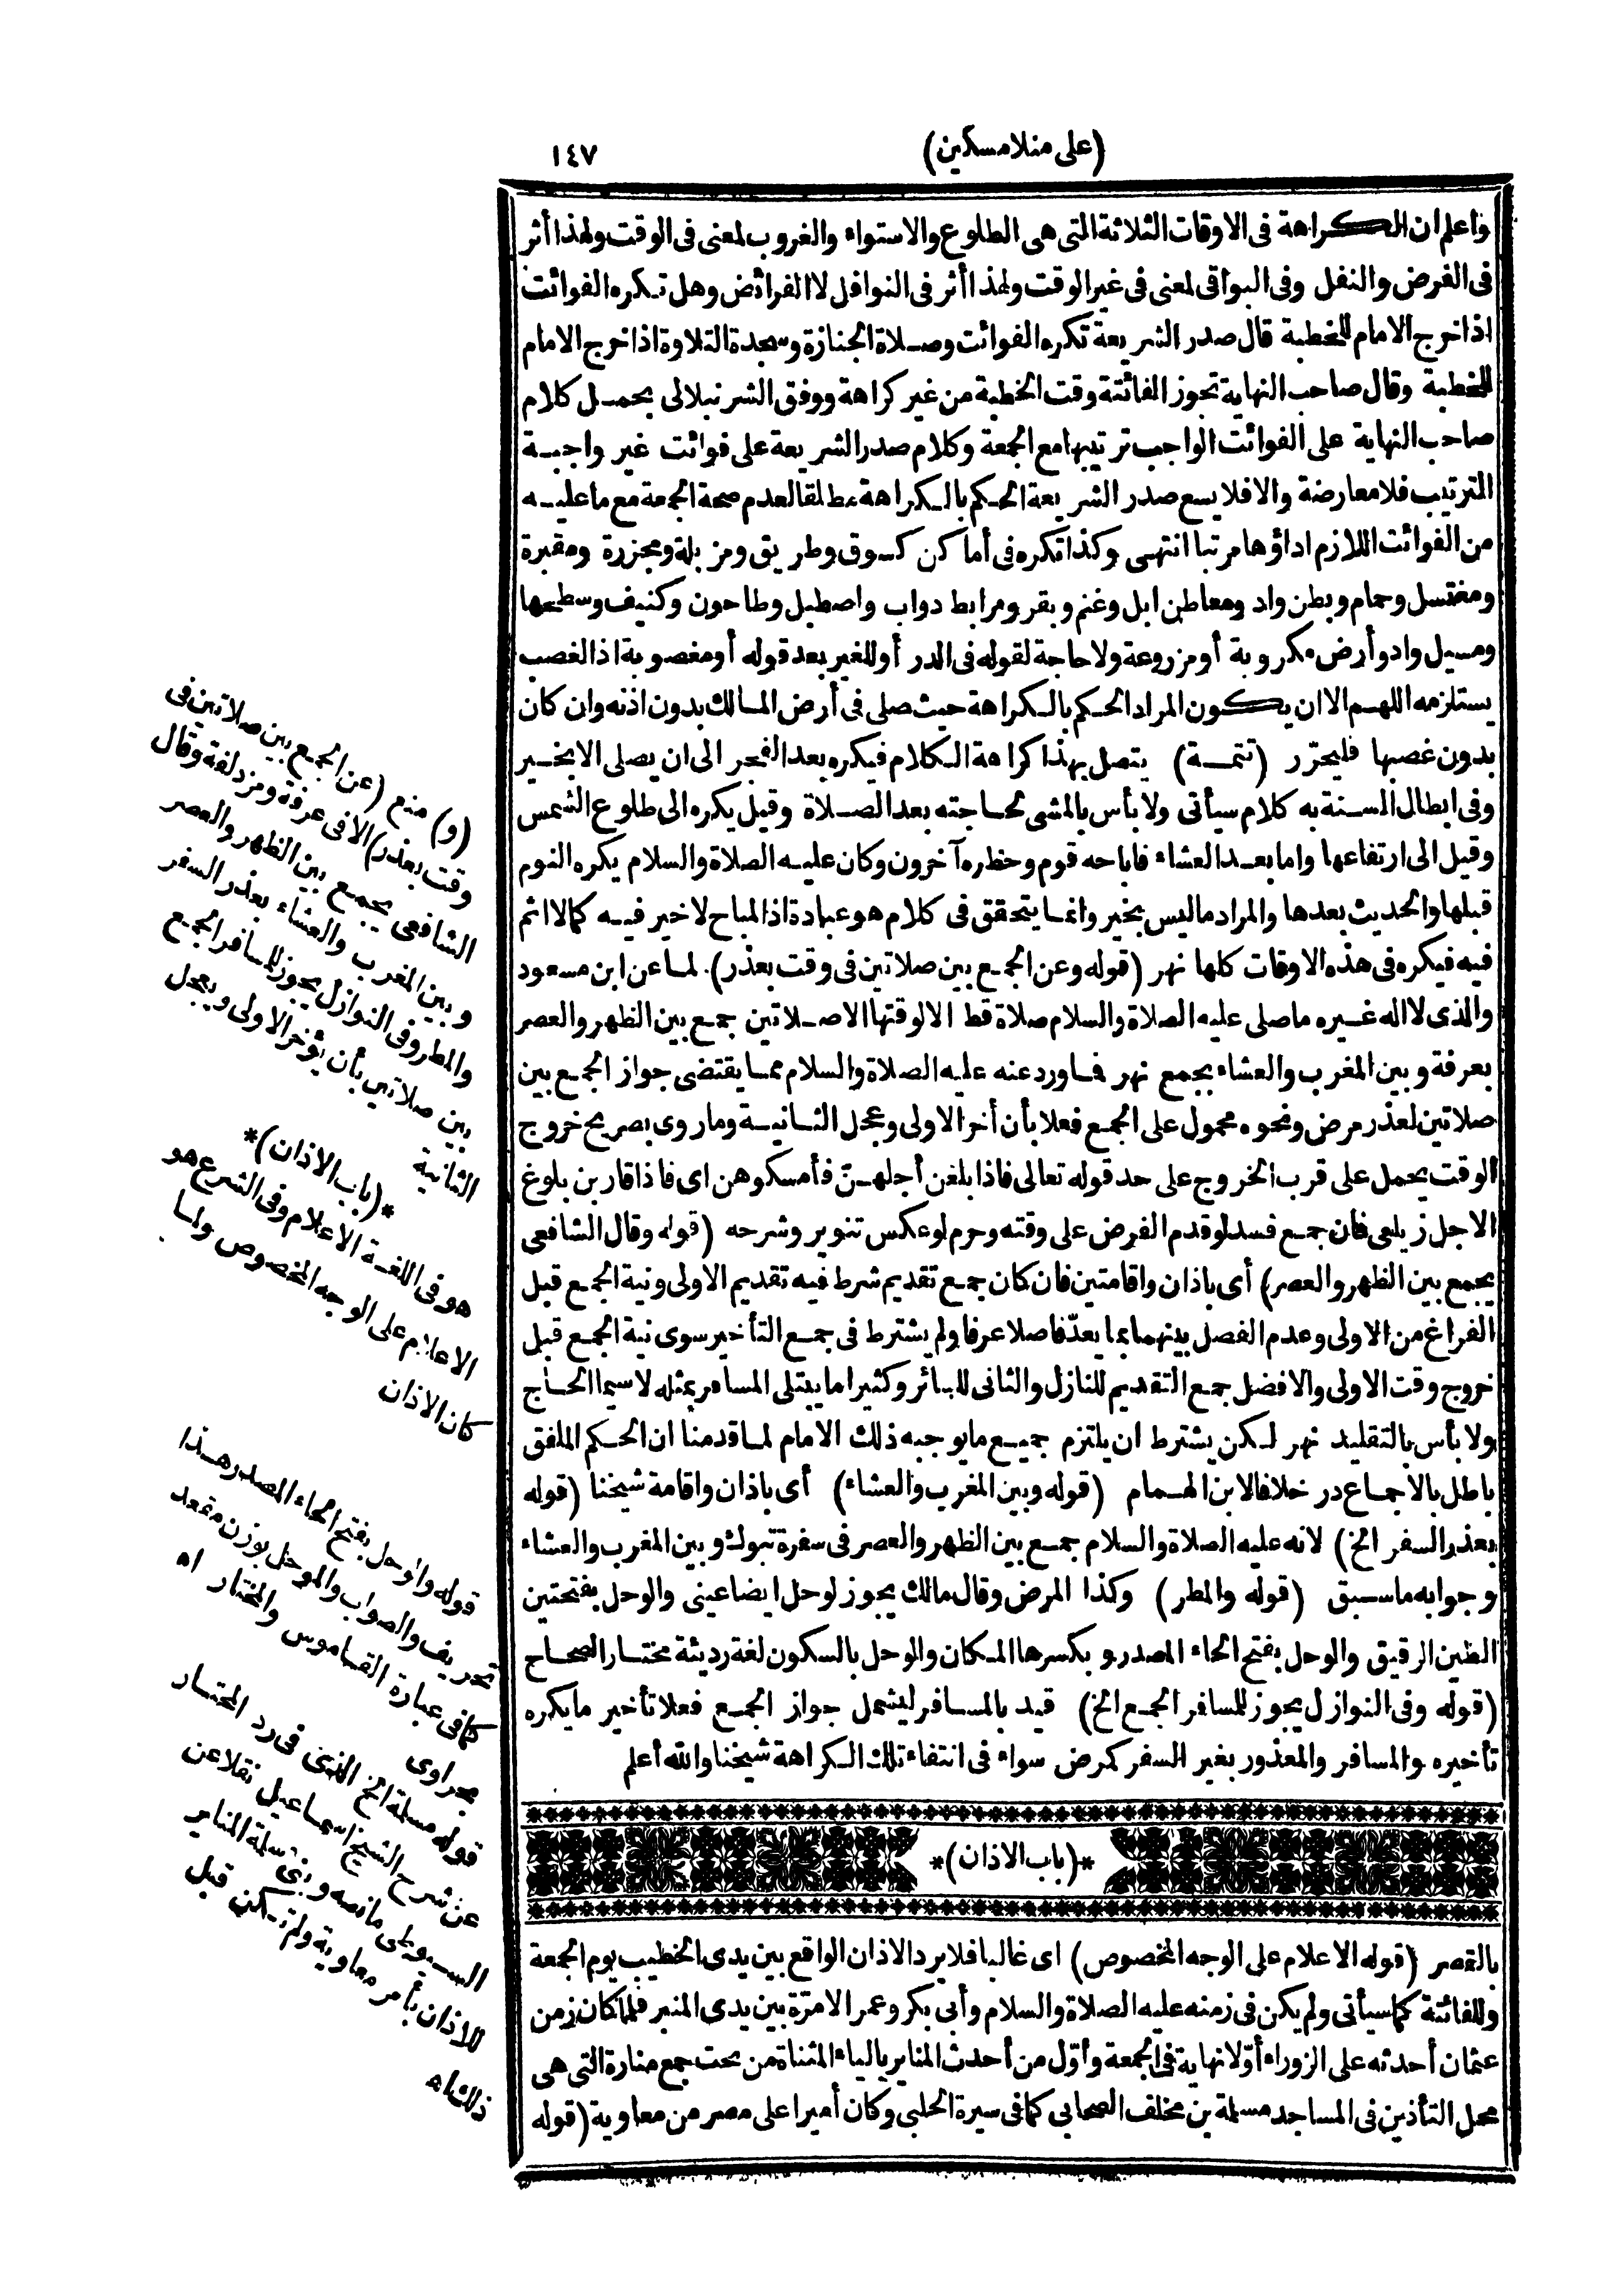 (على منلا مسكين) ١٤٧
واعلم ان الكراهة فى الاوقات الثلاثة التى هى الطلوع والاستواء والغروب لمعنى فى الوقت ولهذا أثر
فى الفرض والنفل وفى البواقى لمعنى فى غير الوقت ولهذا أثر فى النوافل لا الفرائض وهل تكره الفوائت
اذا خرج الامام للخطبة قال صدر الشريعة تكره الفوائت وصلاة الجنازة وسجدة التلاوة اذا خرج الامام
للخطبة وقال صاحب النهاية تجوز الفائتة وقت الخطبة من غير كراهة ووفق الشرنبلالى بحمل كلام
صاحب النهاية على الفوائت الواجب ترتيبها مع الجمعة وكلام صدر الشريعة على فوائت غير واجبة
الترتيب فلا معارضة والا فلا يسع صدر الشريعة الحكم بالكراهة مطلقا لعدم صحة الجمعة مع ما عليه
من الفوائت اللازم اداؤها مرتبا انتهى وكذا تكره فى أماكن كسوق وطريق ومزبلة ومجزرة ومقبرة
ومغتسل وحمام وبطن واد ومعاطن ابل وغنم وبقر ومرابط دواب واصطبل وطاحون وكنيف وسطحها
ومسيل واد وأرض مكروبة أو مزروعة ولا حاجة لقوله فى الدر أو للغير بعد قوله أو مغصوبة اذ الغصب
يستلزمه اللهم الا ان يكون المراد الحكم بالكراهة حيث صلى فى أرض المالك بدون اذنه وان كان
بدون غصبها فليحرّر (تتمة) يتصل بهذا كراهة الكلام فيكره بعد الفجر الى ان يصلى الا بخير
وفى ابطال السنة به كلام سيأتى ولا بأس بالمشى لحاجته بعد الصلاة وقيل يكره الى طلوع الشمس
وقيل الى ارتفاعها واما بعد العشاء فاباحه قوم وحظره آخرون وكان عليه الصلاة والسلام يكره النوم
قبلها والحديث بعدها والمراد ما ليس بخير وانما يتحقق فى كلام هو عبادة اذ المباح لا خير فيه كما لا اثم
فيه فيكره فى هذه الاوقات كلها نهر (قوله وعن الجمع بين صلاتين فى وقت بعذر). لما عن ابن مسعود
والذى لا اله غيره ما صلى عليه الصلاة والسلام صلاة قط الا لوقتها الا صلاتين جمع بين الظهر والعصر
بعرفة وبين المغرب والعشاء بجمع نهر فما ورد عنه عليه الصلاة والسلام مما يقتضى جواز الجمع بين
صلاتين لعذر مرض ونحوه محمول على الجمع فعلا بأن أخر الاولى وعجل الثانية وما روى بصريح خروج
الوقت يحمل على قرب الخروج على حد قوله تعالى فاذا بلغن أجلهنّ فأمسكوهن اى فاذا قاربن بلوغ
الاجل زيلعى فان جمع فسد لو قدم الفرض على وقته وحرم لو عكس تنوير وشرحه (قوله وقال الشافعى
يجمع بين الظهر والعصر) أى باذان واقامتين فان كان جمع تقديم شرط فيه تقديم الاولى ونية الجمع قبل
الفراغ من الاولى وعدم الفصل بينهما بما يعدّ فاصلا عرفا ولم يشترط فى جمع التأخير سوى نية الجمع قبل
خروج وقت الاولى والافضل جمع التقديم للنازل والثانى للسائر وكثيرا ما يبتلى المسافر بمثله لا سيما الحاج
ولا بأس بالتقليد نهر لكن يشترط ان يلتزم جميع ما يوجبه ذلك الامام لما قدمنا ان الحكم الملفق
باطل بالاجماع در خلافا لابن الهمام (قوله وبين المغرب والعشاء) أى باذان واقامة شيخنا (قوله
بعذر السفر الخ) لانه عليه الصلاة والسلام جمع بين الظهر والعصر فى سفرة تبوك وبين المغرب والعشاء
وجوابه ما سبق (قوله والمطر) وكذا المرض وقال مالك يجوز لوحل ايضا عينى والوحل بفتحتين
الطين الرقيق والوحل بفتح الحاء المصدر وبكسرها المكان والوحل بالسكون لغة رديئة مختار الصحاح
(قوله وفى النوازل يجوز للمسافر الجمع الخ) قيد بالمسافر ليشمل جواز الجمع فعلا تأخير ما يكره
تأخيره والمسافر والمعذور بغير السفر كمرض سواء فى انتفاء تلك الكراهة شيخنا والله أعلم
*(باب الاذان)*
بالقصر (قوله الاعلام على الوجه المخصوص) اى غالبا فلا يرد الاذان الواقع بين يدى الخطيب يوم الجمعة
وللفائتة كما سيأتى ولم يكن فى زمنه عليه الصلاة والسلام وأبى بكر وعمر الا مرّة بين يدى المنبر فلما كان زمن
عثمان أحدثه على الزوراء أوّلا نهاية فى الجمعة وأوّل من أحدث المناير بالياء المثناة من تحت جمع منارة التى هى
محل التأذين فى المساجد مسلمة بن مخلف الصحابى كما فى سيرة الحلبى وكان أميرا على مصر من معاوية (قوله
(و) منع (عن الجمع بين صلاتين فى
وقت بعذر) الا فى عرفة ومزدلفة وقال
الشافعى يجمع بين الظهر والعصر
وبين المغرب والعشاء بعذر السفر
والمطر وفى النوازل يجوز للمسافر الجمع
بين صلاتين بأن يؤخر الاولى ويعجل
الثانية
*(باب الاذان)*
هو فى اللغة الاعلام وفى الشرع هو
الاعلام على الوجه المخصوص ولما
كان الاذان
قوله والوحل بفتح الحاء المصدر هذا
تحريف والصواب والموحل بوزن مقعد
كما فى عبارة القاموس والمختار اه
بحراوى
قوله مسلمة الخ الذى فى رد المحتار
عن شرح الشيخ اسماعيل نقلا عن
السيوطى ما نصه وبنى سلمة المناير
للاذان بأمر معاوية ولم تكن قبل
ذلك اه